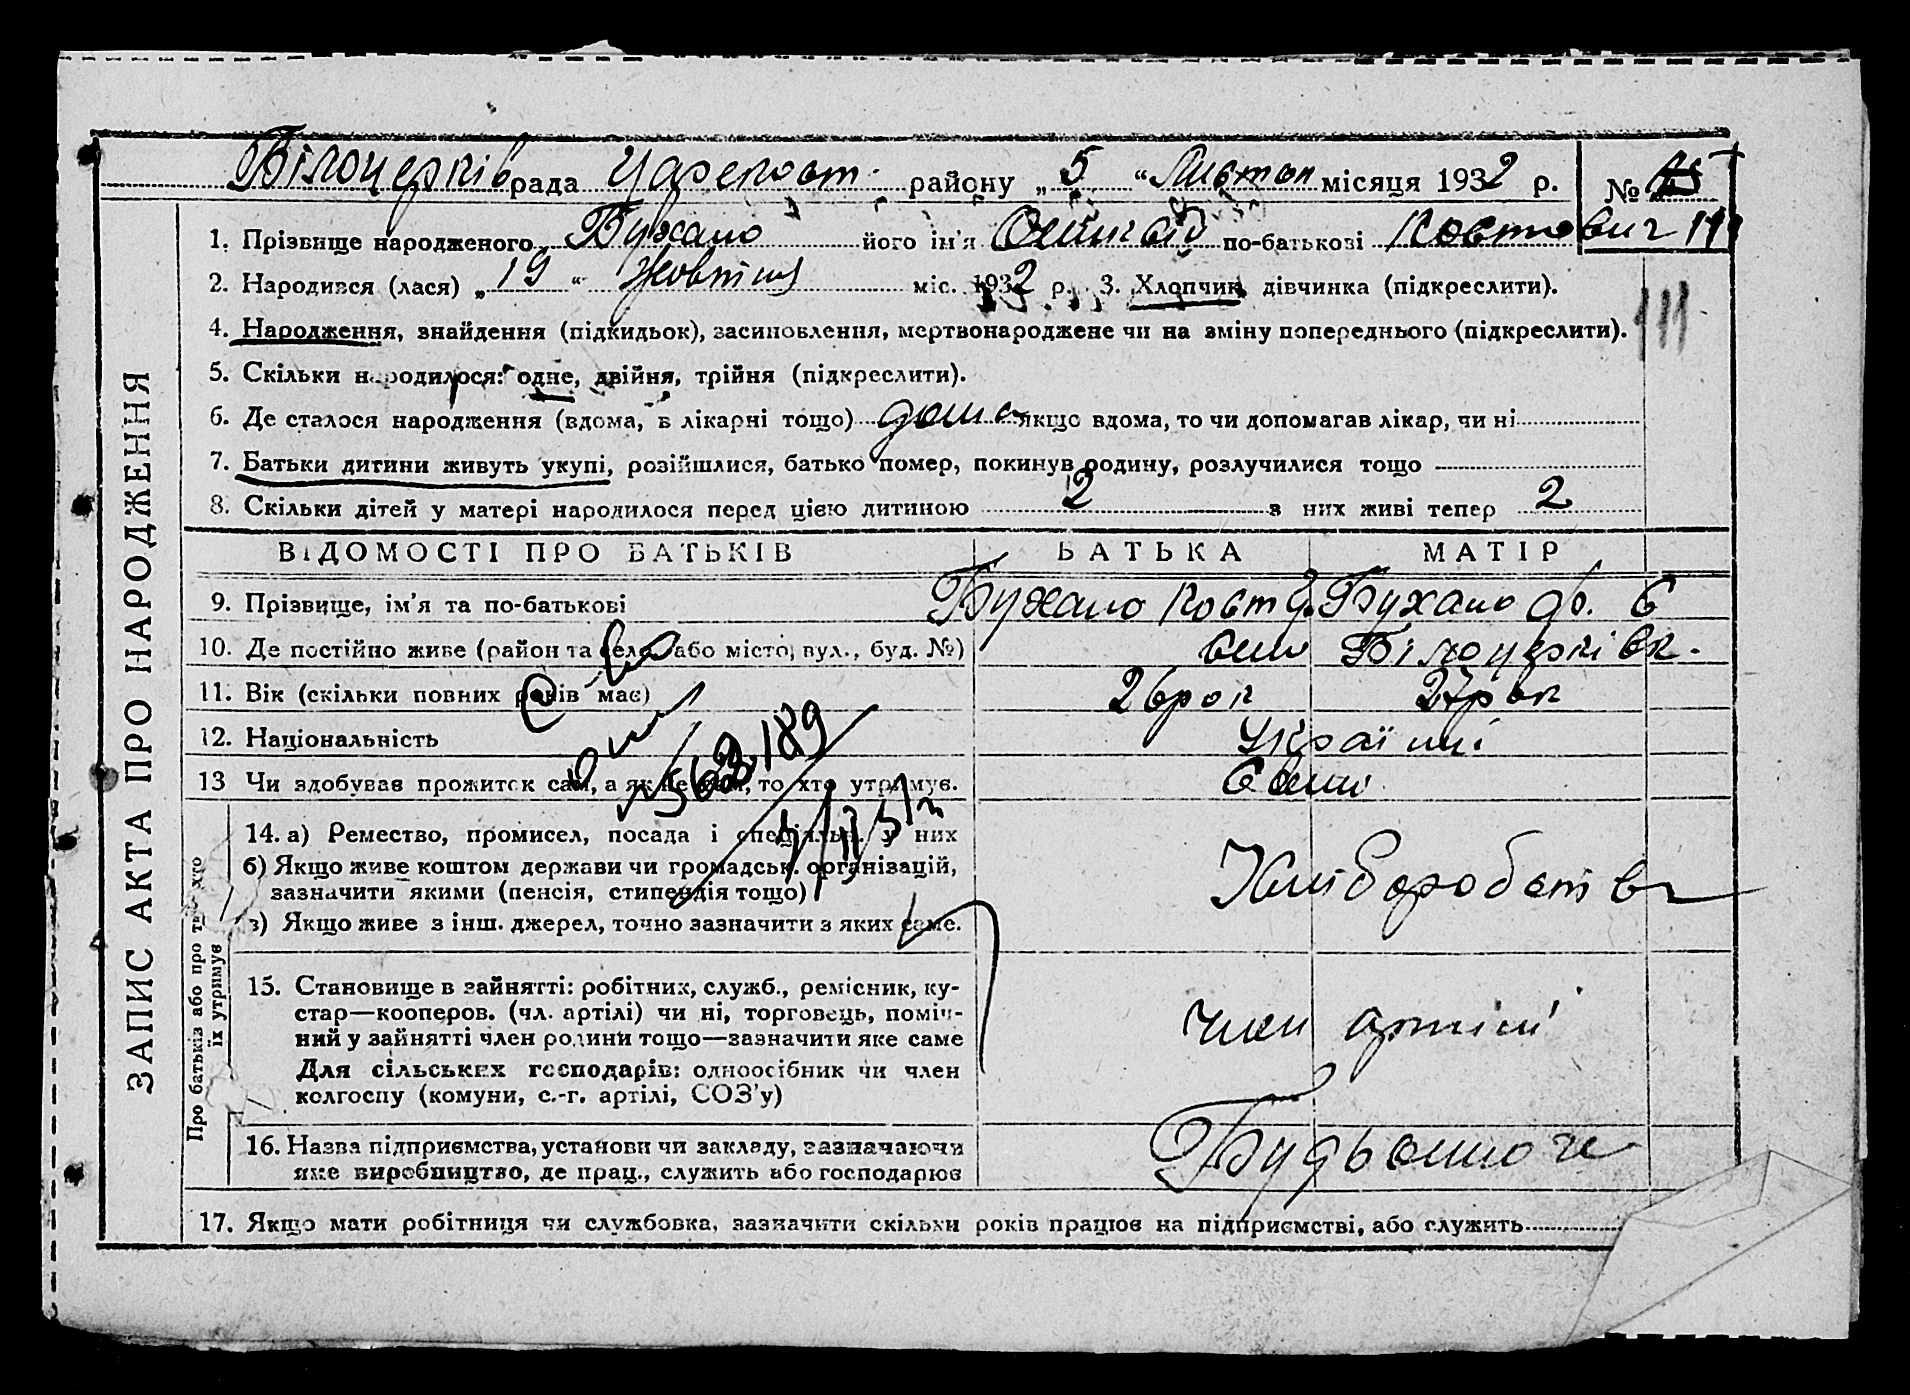 Білоцерків рада Царекост. району „ 5 “ Листоп місяця 1932 р. №
1. Прізвище народженого Бухало його ім'я по-батькові Костович
2. Народився (лася) „ 19 “ Жовтня міс. 1932 р. 3. Хлопчик, дівчинка (підкреслити).
4. Народження, знайдення (підкидьок), засиновлення, мертвонароджене чи на зміну попереднього (підкреслити).
111
5. Скільки народилося: одне, двійня, трійня (підкреслити).
6. Де сталося народження (вдома, в лікарні тощо) дома якщо вдома, то чи допомагав лікар, чи ні
7. Батьки дитини живуть укупі, розійшлися, батько помер, покинув родину, розлучилися тощо
8. Скільки дітей у матері народилося перед цією дитиною 2 з них живі тепер 2
ВІДОМОСТІ ПРО БАТЬКІВ БАТЬКА МАТІР
9. Прізвище, ім'я та по-батькові Бухало Кост Бухало
10. Де постійно живе (район та село, або місто, вул., буд. №) село Білоцерківк.
11. Вік (скільки повних років має) 26 рок 27 рок
12. Національність Україці
13 Чи здобував прожиток сам, а як не сам, то хто утримує.
14. а) Ремество, промисел, посада і спеціальн. у них
б) Якщо живе коштом держави чи громадськ. організацій,
зазначити якими (пенсія, стипендія тощо)
в) Якщо живе з інш. джерел, точно зазначити з яких саме.
Хліборобств
15. Становище в зайнятті: робітник, служб., ремісник, ку-
стар—кооперов. (чл. артілі) чи ні, торговець, поміч-
ний у зайнятті член родини тощо—зазначити яке саме
Для сільських господарів: одноосібник чи член
колгоспу (комуни, с.-г. артілі, СОЗ'у)
член артілі
16. Назва підприємства, установи чи закладу, зазначаючи
яке виробництво, де прац., служить або господарює
Будьонного
17. Якщо мати робітниця чи службовка, зазначити скільки років працює на підприємстві, або служить
ЗАПИС АКТА ПРО НАРОДЖЕННЯ
Про батьків або про тих, хто
їх утримує